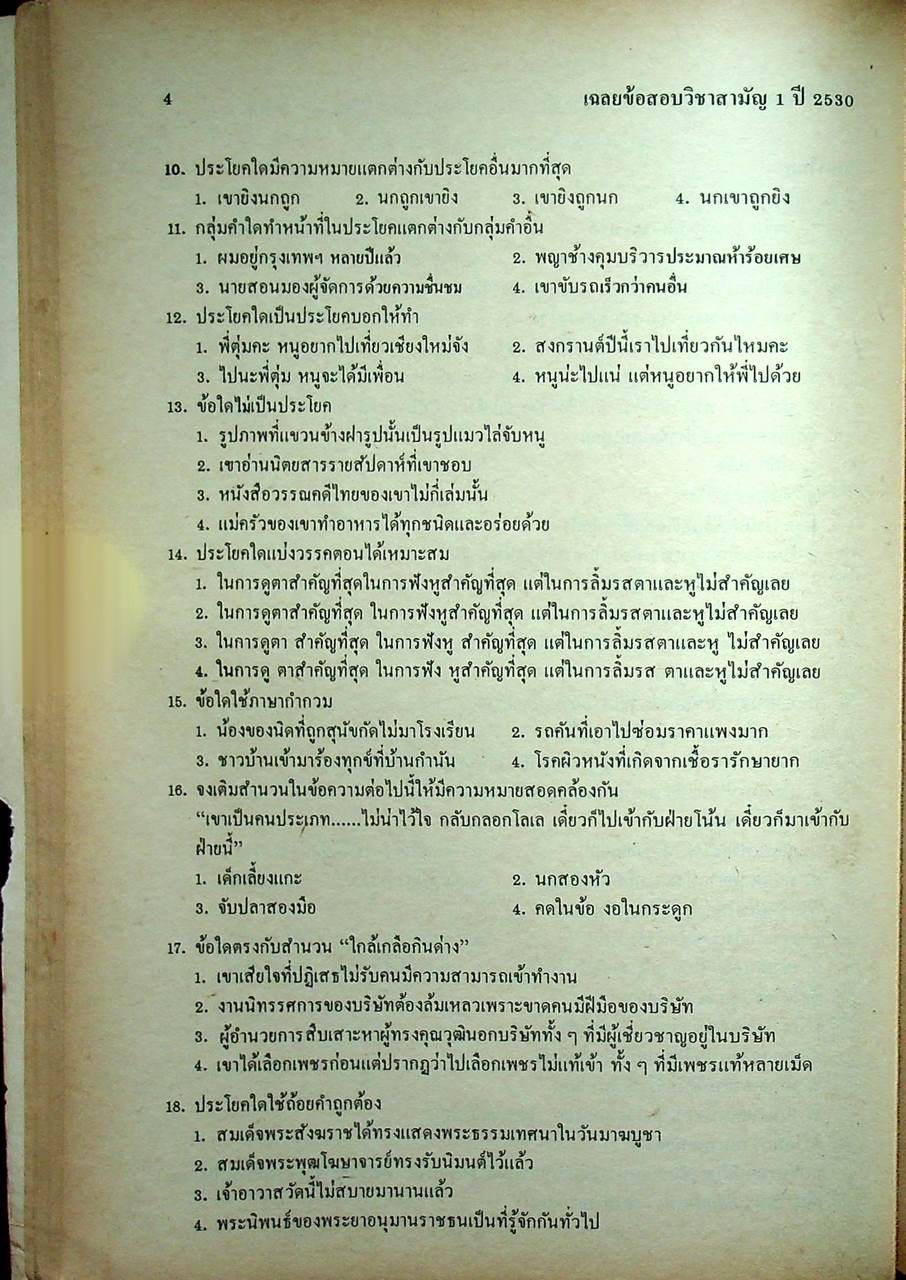 4 เฉลยข้อสอบวิชาสามัญ 1 ปี 2530
10. ประโยคใดมีความหมายแตกต่างกับประโยคอื่นมากที่สุด
1. เขายิงนกถูก 2. นกถูกเขายิง 3. เขายิงถูกนก 4. นกเขาถูกยิง
11. กลุ่มคำใดทำหน้าที่ในประโยคแตกต่างกับกลุ่มคำอื่น
1. ผมอยู่กรุงเทพฯ หลายปีแล้ว 2. พญาช้างคุมบริวารประมาณห้าร้อยเศษ
3. นายสอนมองผู้จัดการด้วยความชื่นชม 4. เขาขับรถเร็วกว่าคนอื่น
12. ประโยคใดเป็นประโยคบอกให้ทำ
1. พี่ตุ่มคะ หนูอยากไปเที่ยวเชียงใหม่จัง 2. สงกรานต์ปีนี้เราไปเที่ยวกันไหมคะ
3. ไปนะพี่ตุ่ม หนูจะได้มีเพื่อน 4. หนูน่ะไปแน่ แต่หนูอยากให้พี่ไปด้วย
13. ข้อใดไม่เป็นประโยค
1. รูปภาพที่แขวนข้างฝารูปนั้นเป็นรูปแมวไล่จับหนู
2. เขาอ่านนิตยสารรายสัปดาห์ที่เขาชอบ
3. หนังสือวรรณคดีไทยของเขาไม่กี่เล่มนั้น
4. แม่ครัวของเขาทำอาหารได้ทุกชนิดและอร่อยด้วย
14. ประโยคใดแบ่งวรรคตอนได้เหมาะสม
1. ในการดูตาสำคัญที่สุดในการฟังหูสำคัญที่สุด แต่ในการลิ้มรสตาและหูไม่สำคัญเลย
2. ในการดูตาสำคัญที่สุด ในการฟังหูสำคัญที่สุด แต่ในการลิ้มรสตาและหูไม่สำคัญเลย
3. ในการดูตา สำคัญที่สุด ในการฟังหู สำคัญที่สุด แต่ในการลิ้มรสตาและหู ไม่สำคัญเลย
4. ในการดู ตาสำคัญที่สุด ในการฟัง หูสำคัญที่สุด แต่ในการลิ้มรส ตาและหูไม่สำคัญเลย
15. ข้อใดใช้ภาษากำกวม
1. น้องของนิดที่ถูกสุนัขกัดไม่มาโรงเรียน 2. รถคันที่เอาไปซ่อมราคาแพงมาก
3. ชาวบ้านเข้ามาร้องทุกข์ที่บ้านกำนัน 4. โรคผิวหนังที่เกิดจากเชื้อรารักษายาก
16. จงเติมสำนวนในข้อความต่อไปนี้ให้มีความหมายสอดคล้องกัน
“เขาเป็นคนประเภท......ไม่น่าไว้ใจ กลับกลอกโลเล เดี๋ยวก็ไปเข้ากับฝ่ายโน้น เดี๋ยวก็มาเข้ากับ
ฝ่ายนี้”
1. เด็กเลี้ยงแกะ 2. นกสองหัว
3. จับปลาสองมือ 4. คดในข้อ งอในกระดูก
17. ข้อใดตรงกับสำนวน “ใกล้เกลือกินด่าง”
1. เขาเสียใจที่ปฏิเสธไม่รับคนมีความสามารถเข้าทำงาน
2. งานนิทรรศการของบริษัทต้องล้มเหลวเพราะขาดคนมีฝีมือของบริษัท
3. ผู้อำนวยการสืบเสาะหาผู้ทรงคุณวุฒินอกบริษัททั้ง ๆ ที่มีผู้เชี่ยวชาญอยู่ในบริษัท
4. เขาได้เลือกเพชรก่อนแต่ปรากฏว่าไปเลือกเพชรไม่แท้เข้า ทั้ง ๆ ที่มีเพชรแท้หลายเม็ด
18. ประโยคใดใช้ถ้อยคำถูกต้อง
1. สมเด็จพระสังฆราชได้ทรงแสดงพระธรรมเทศนาในวันมาฆบูชา
2. สมเด็จพระพุฒโฆษาจารย์ทรงรับนิมนต์ไว้แล้ว
3. เจ้าอาวาสวัดนี้ไม่สบายมานานแล้ว
4. พระนิพนธ์ของพระยาอนุมานราชธนเป็นที่รู้จักกันทั่วไป